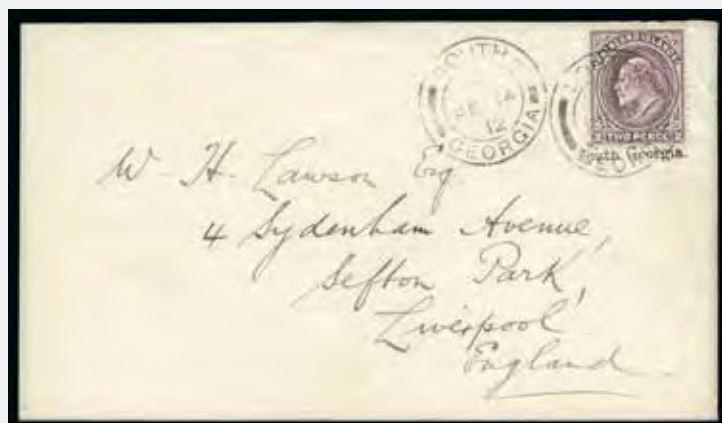 SOUTH
12
GEORGIA
TWO PENCE
South Georgia.
W. H. Lawson Esq
4 Sydenham Avenue,
Sefton Park,
Liverpool
England